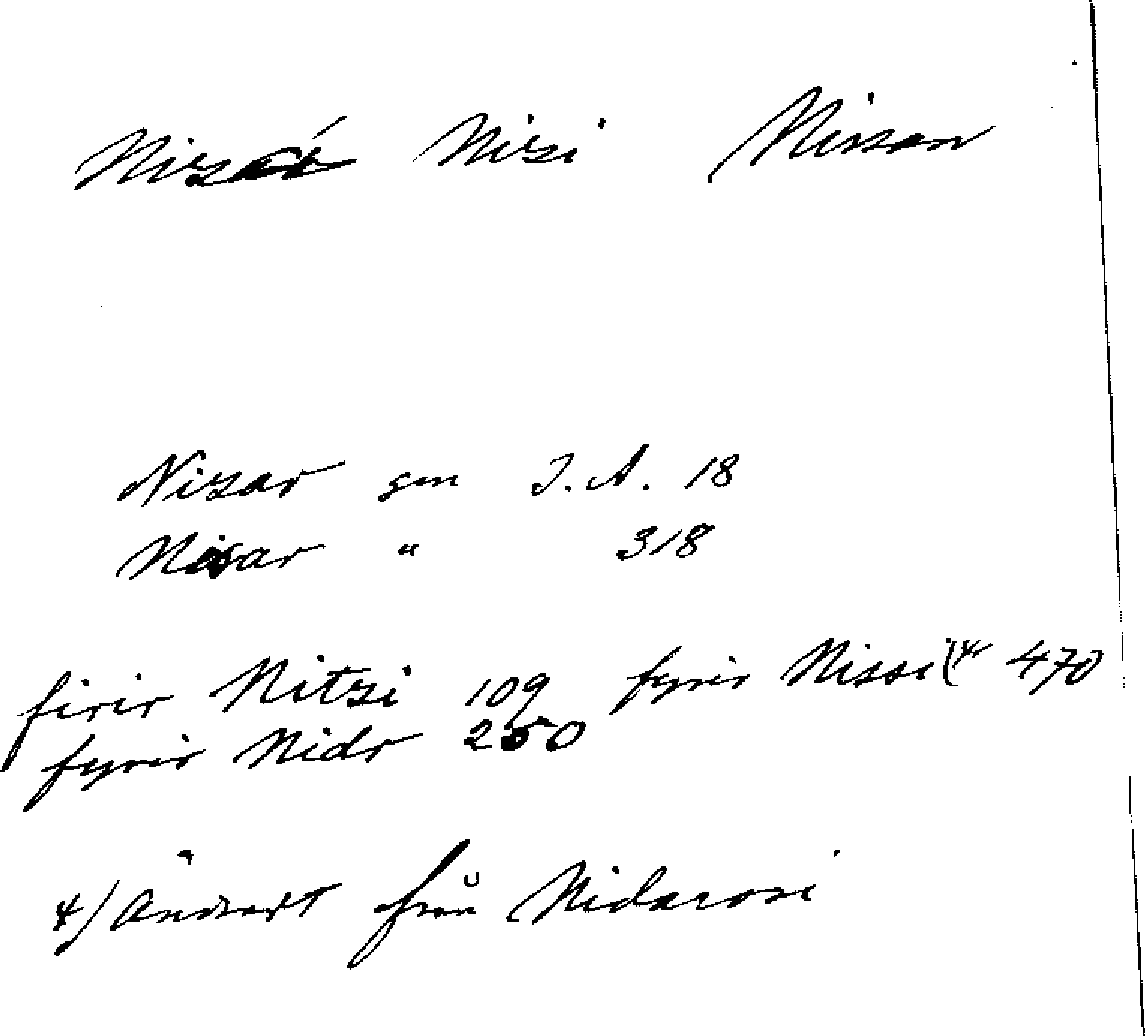 Nizá Nizi Nissan
Nizar gen J.A. 18
Nisar " 318
firir Nitzi 109 fyrir Nissi (* 470
fyrir Nidr 250
*) Ändrat från Nidarosi